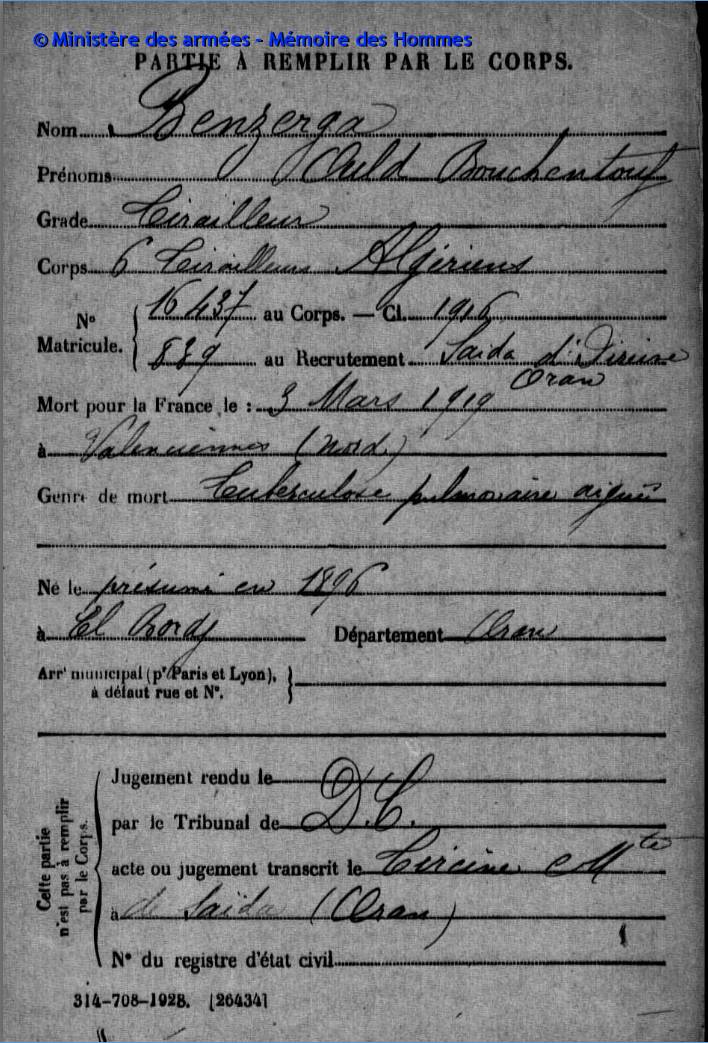 © Ministère des armées - Mémoire des Hommes
PARTIE À REMPLIR PAR LE CORPS.
Nom Benzerga
Prénoms Ould Bouchentouf
Grade Tirailleur
Corps 6 Tirailleurs Algériens
N°
Matricule.
16 437 au Corps. — Cl. 1916
839 au Recrutement Saïda
Oran
Mort pour la France le : 3 Mars 1919
à Valenciennes (Nord)
Genre de mort Tuberculose pulmonaire aiguë
Né le présumé en 1896
à El Bordj Département Oran
Arrt municipal (pr Paris et Lyon),
à défaut rue et N°.
Cette partie
n'est pas à remplir
par le Corps.
Jugement rendu le
par le Tribunal de D.C.
acte ou jugement transcrit le
à de Saïda (Oran)
N° du registre d'état civil
314-708-1928. [26434]